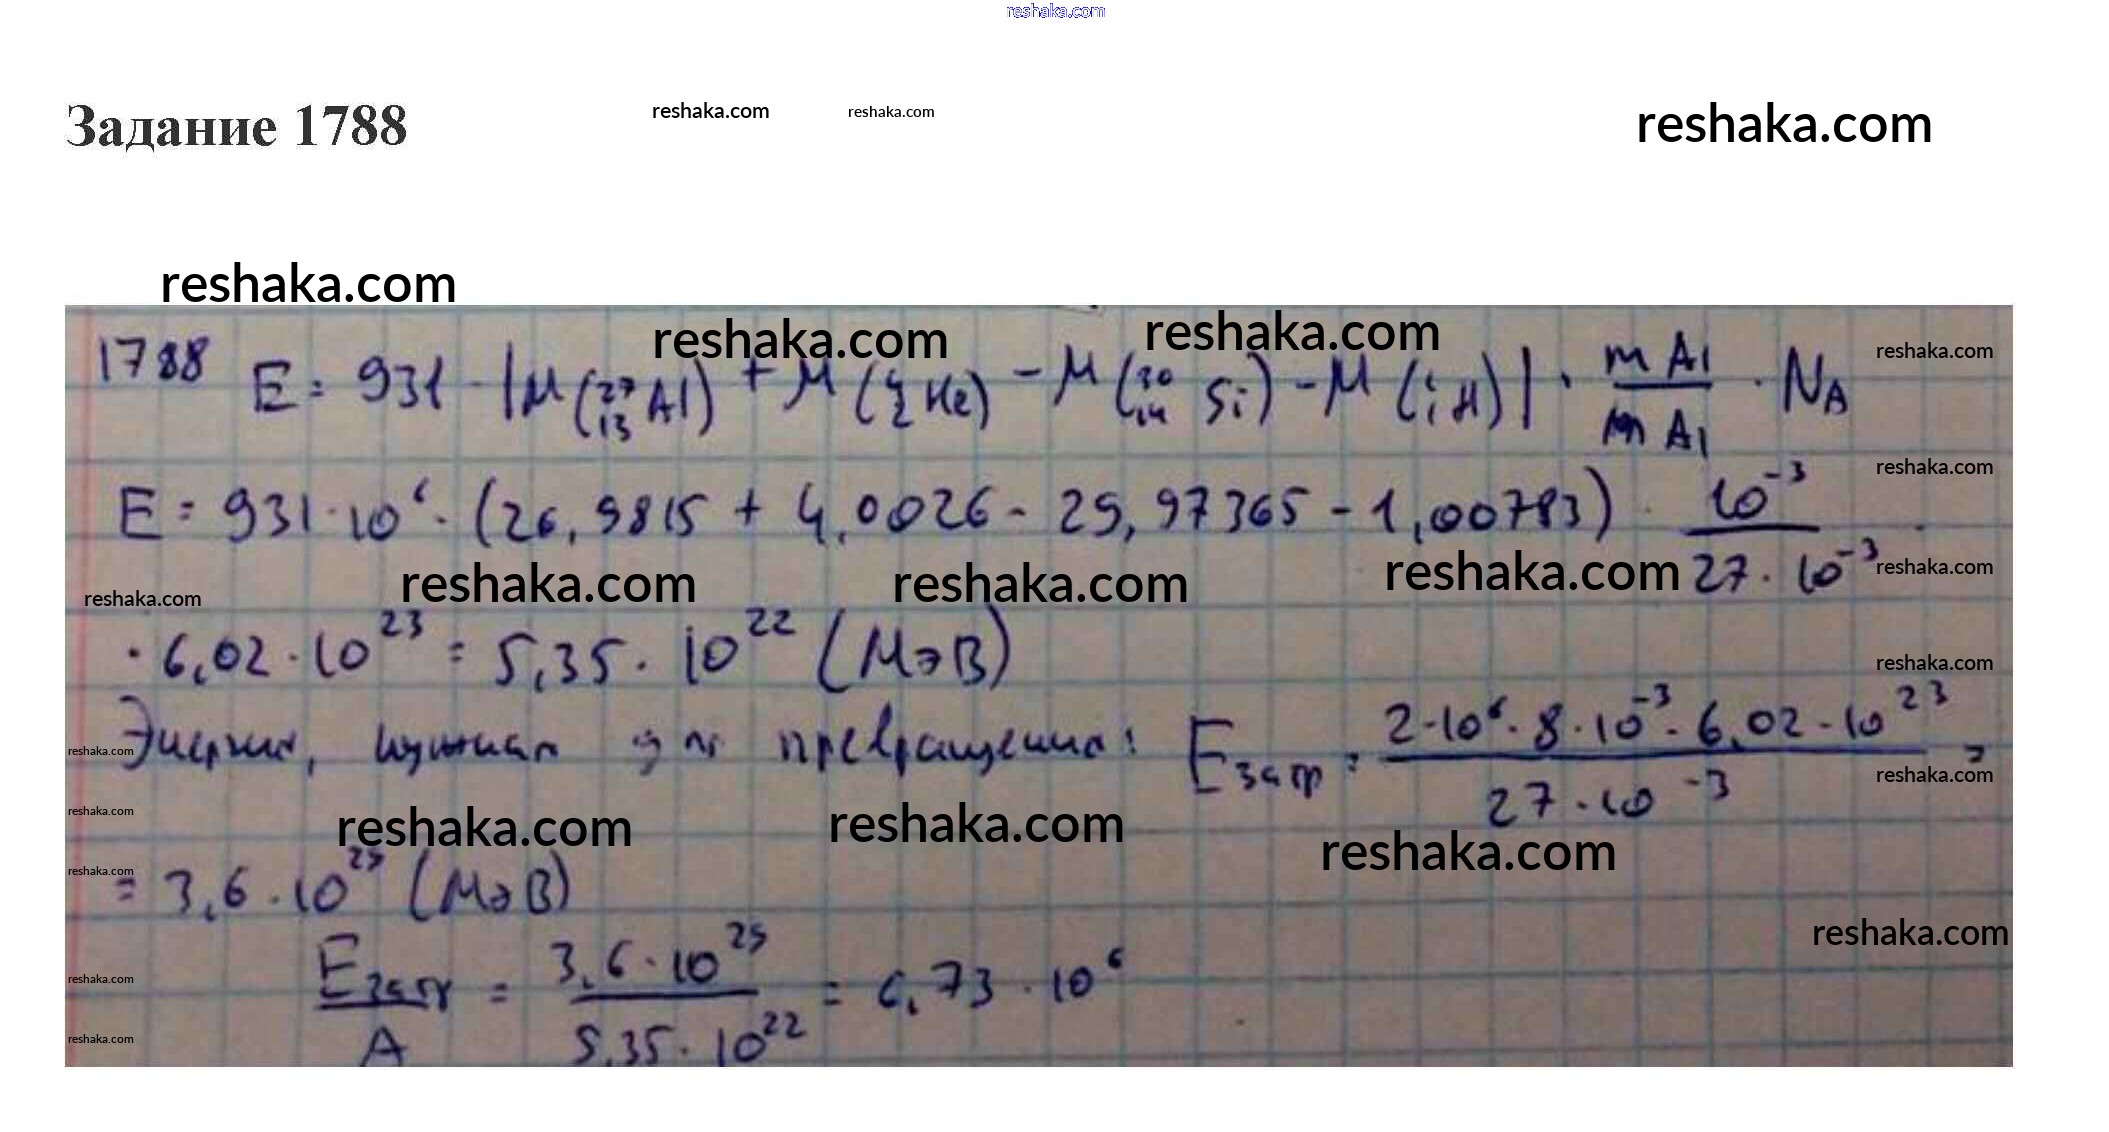 reshaka.com
Задание 1788
reshaka.com reshaka.com reshaka.com
reshaka.com
reshaka.com reshaka.com reshaka.com
1788 E = 931 · |M(²⁷₁₃Al) + M(⁴₂He) - M(³⁰₁₄Si) - M(¹₁H)| · mAl/mAl · N_A
reshaka.com
E = 931 · 10⁶ · (26,9815 + 4,0026 - 29,97365 - 1,00783) · 10⁻³/27 · 10⁻³ ·
reshaka.com reshaka.com reshaka.com reshaka.com reshaka.com
· 6,02 · 10²³ = 5,35 · 10²² (МэВ)
reshaka.com
Энергия, нужная для превращения: Eзатр = 2·10⁶ · 8 · 10⁻³ · 6,02 · 10²³/27 · 10⁻³ =
reshaka.com reshaka.com
reshaka.com reshaka.com reshaka.com reshaka.com
reshaka.com
= 3,6 · 10²⁹ (МэВ)
reshaka.com
Eзатр/A = 3,6 · 10²⁹/5,35 · 10²² = 6,73 · 10⁶
reshaka.com
reshaka.com